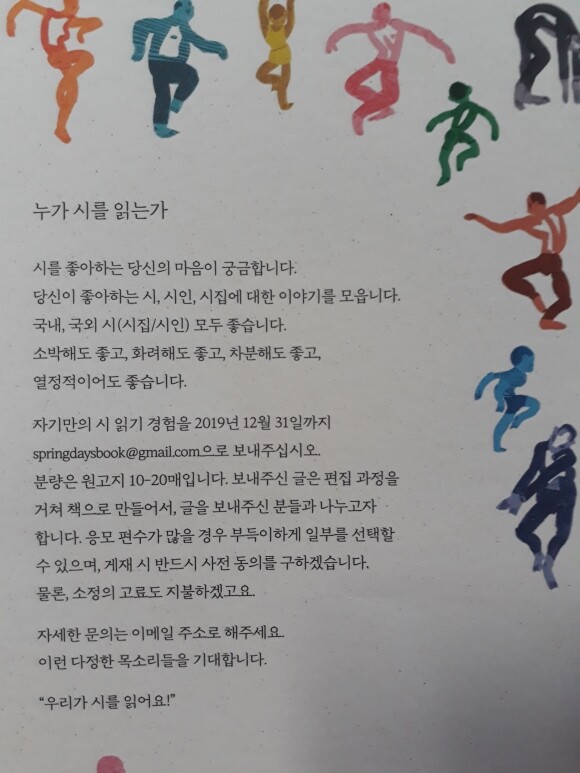 누가 시를 읽는가
시를 좋아하는 당신의 마음이 궁금합니다.
당신이 좋아하는 시, 시인, 시집에 대한 이야기를 모읍니다.
국내, 국외 시(시집/시인) 모두 좋습니다.
소박해도 좋고, 화려해도 좋고, 차분해도 좋고,
열정적이어도 좋습니다.
자기만의 시 읽기 경험을 2019년 12월 31일까지
springdaysbook@gmail.com으로 보내주십시오.
분량은 원고지 10-20매입니다. 보내주신 글은 편집 과정을
거쳐 책으로 만들어서, 글을 보내주신 분들과 나누고자
합니다. 응모 편수가 많을 경우 부득이하게 일부를 선택할
수 있으며, 게재 시 반드시 사전 동의를 구하겠습니다.
물론, 소정의 고료도 지불하겠고요.
자세한 문의는 이메일 주소로 해주세요.
이런 다정한 목소리들을 기대합니다.
“우리가 시를 읽어요!”